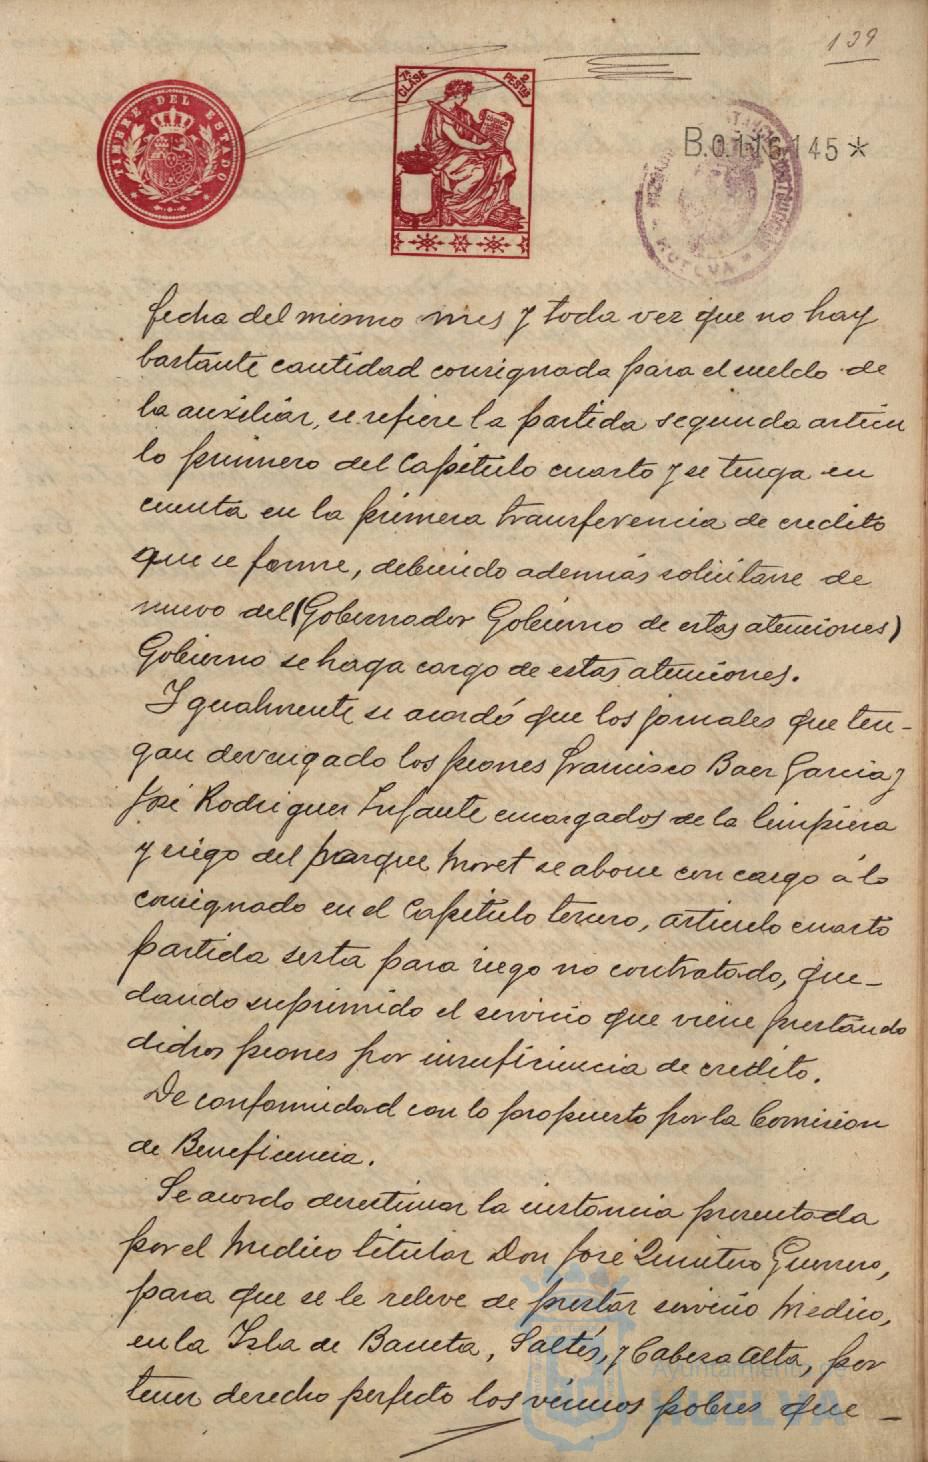 139
TIMBRE DEL ESTADO
7ª CLASE 2 PESTAS
B.0.116.145*
HUELVA
fecha del mismo mes y toda vez que no hay
bastante cantidad consignada para el sueldo de
la auxiliar, se refiere la partida segunda artícu
lo primero del Capitulo cuarto y se tenga en
cuenta en la primera transferencia de credito
que se forme, debiendo además solicitarse de
nuevo del (Gobernador Gobierno de estas atenciones)
Gobierno se haga cargo de estas atenciones.
Igualmente se acordó que los jornales que ten-
gan devengado los peones Francisco Baez Garcia y
José Rodriguez Infante encargados de la limpieza
y riego del parque Moret se abone con cargo á lo
consignado en el Capitulo tercero, articulo cuarto
partida sexta para riego no contratado, que-
dando suprimido el servicio que viene prestando
dichos peones por insuficiencia de credito.
De conformidad con lo propuesto por la Comision
de Beneficencia.
Se acordo desestimar la instancia presentada
por el Medico titular Don José Quintero Guerrero,
para que se le releve de prestar servicio Medico,
en la Isla de Bacuta, Saltés, y Cabeza Alta, por
tener derecho perfecto los vecinos pobres que -
Ayuntamiento de
HUELVA